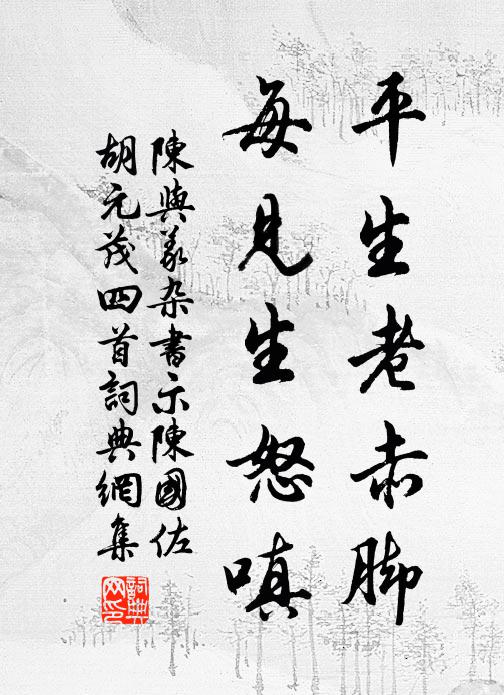 平生老赤脚
每見生怒嗔
陳與義杂書示陳國佐
胡元茂四首詞典網集